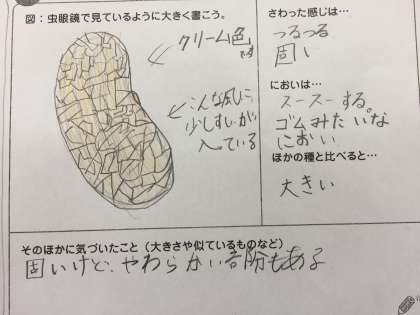 図：虫眼鏡で見ているように大きく書こう。
クリーム色
です
こんな風に、
少しすじが
入っている
さわった感じは…
つるつる
固い
においは…
スースーする。
ゴムみたいな
におい
ほかの種と比べると…
大きい
そのほかに気づいたこと（大きさや似ているものなど）
固いけど、やわらかい部分もある